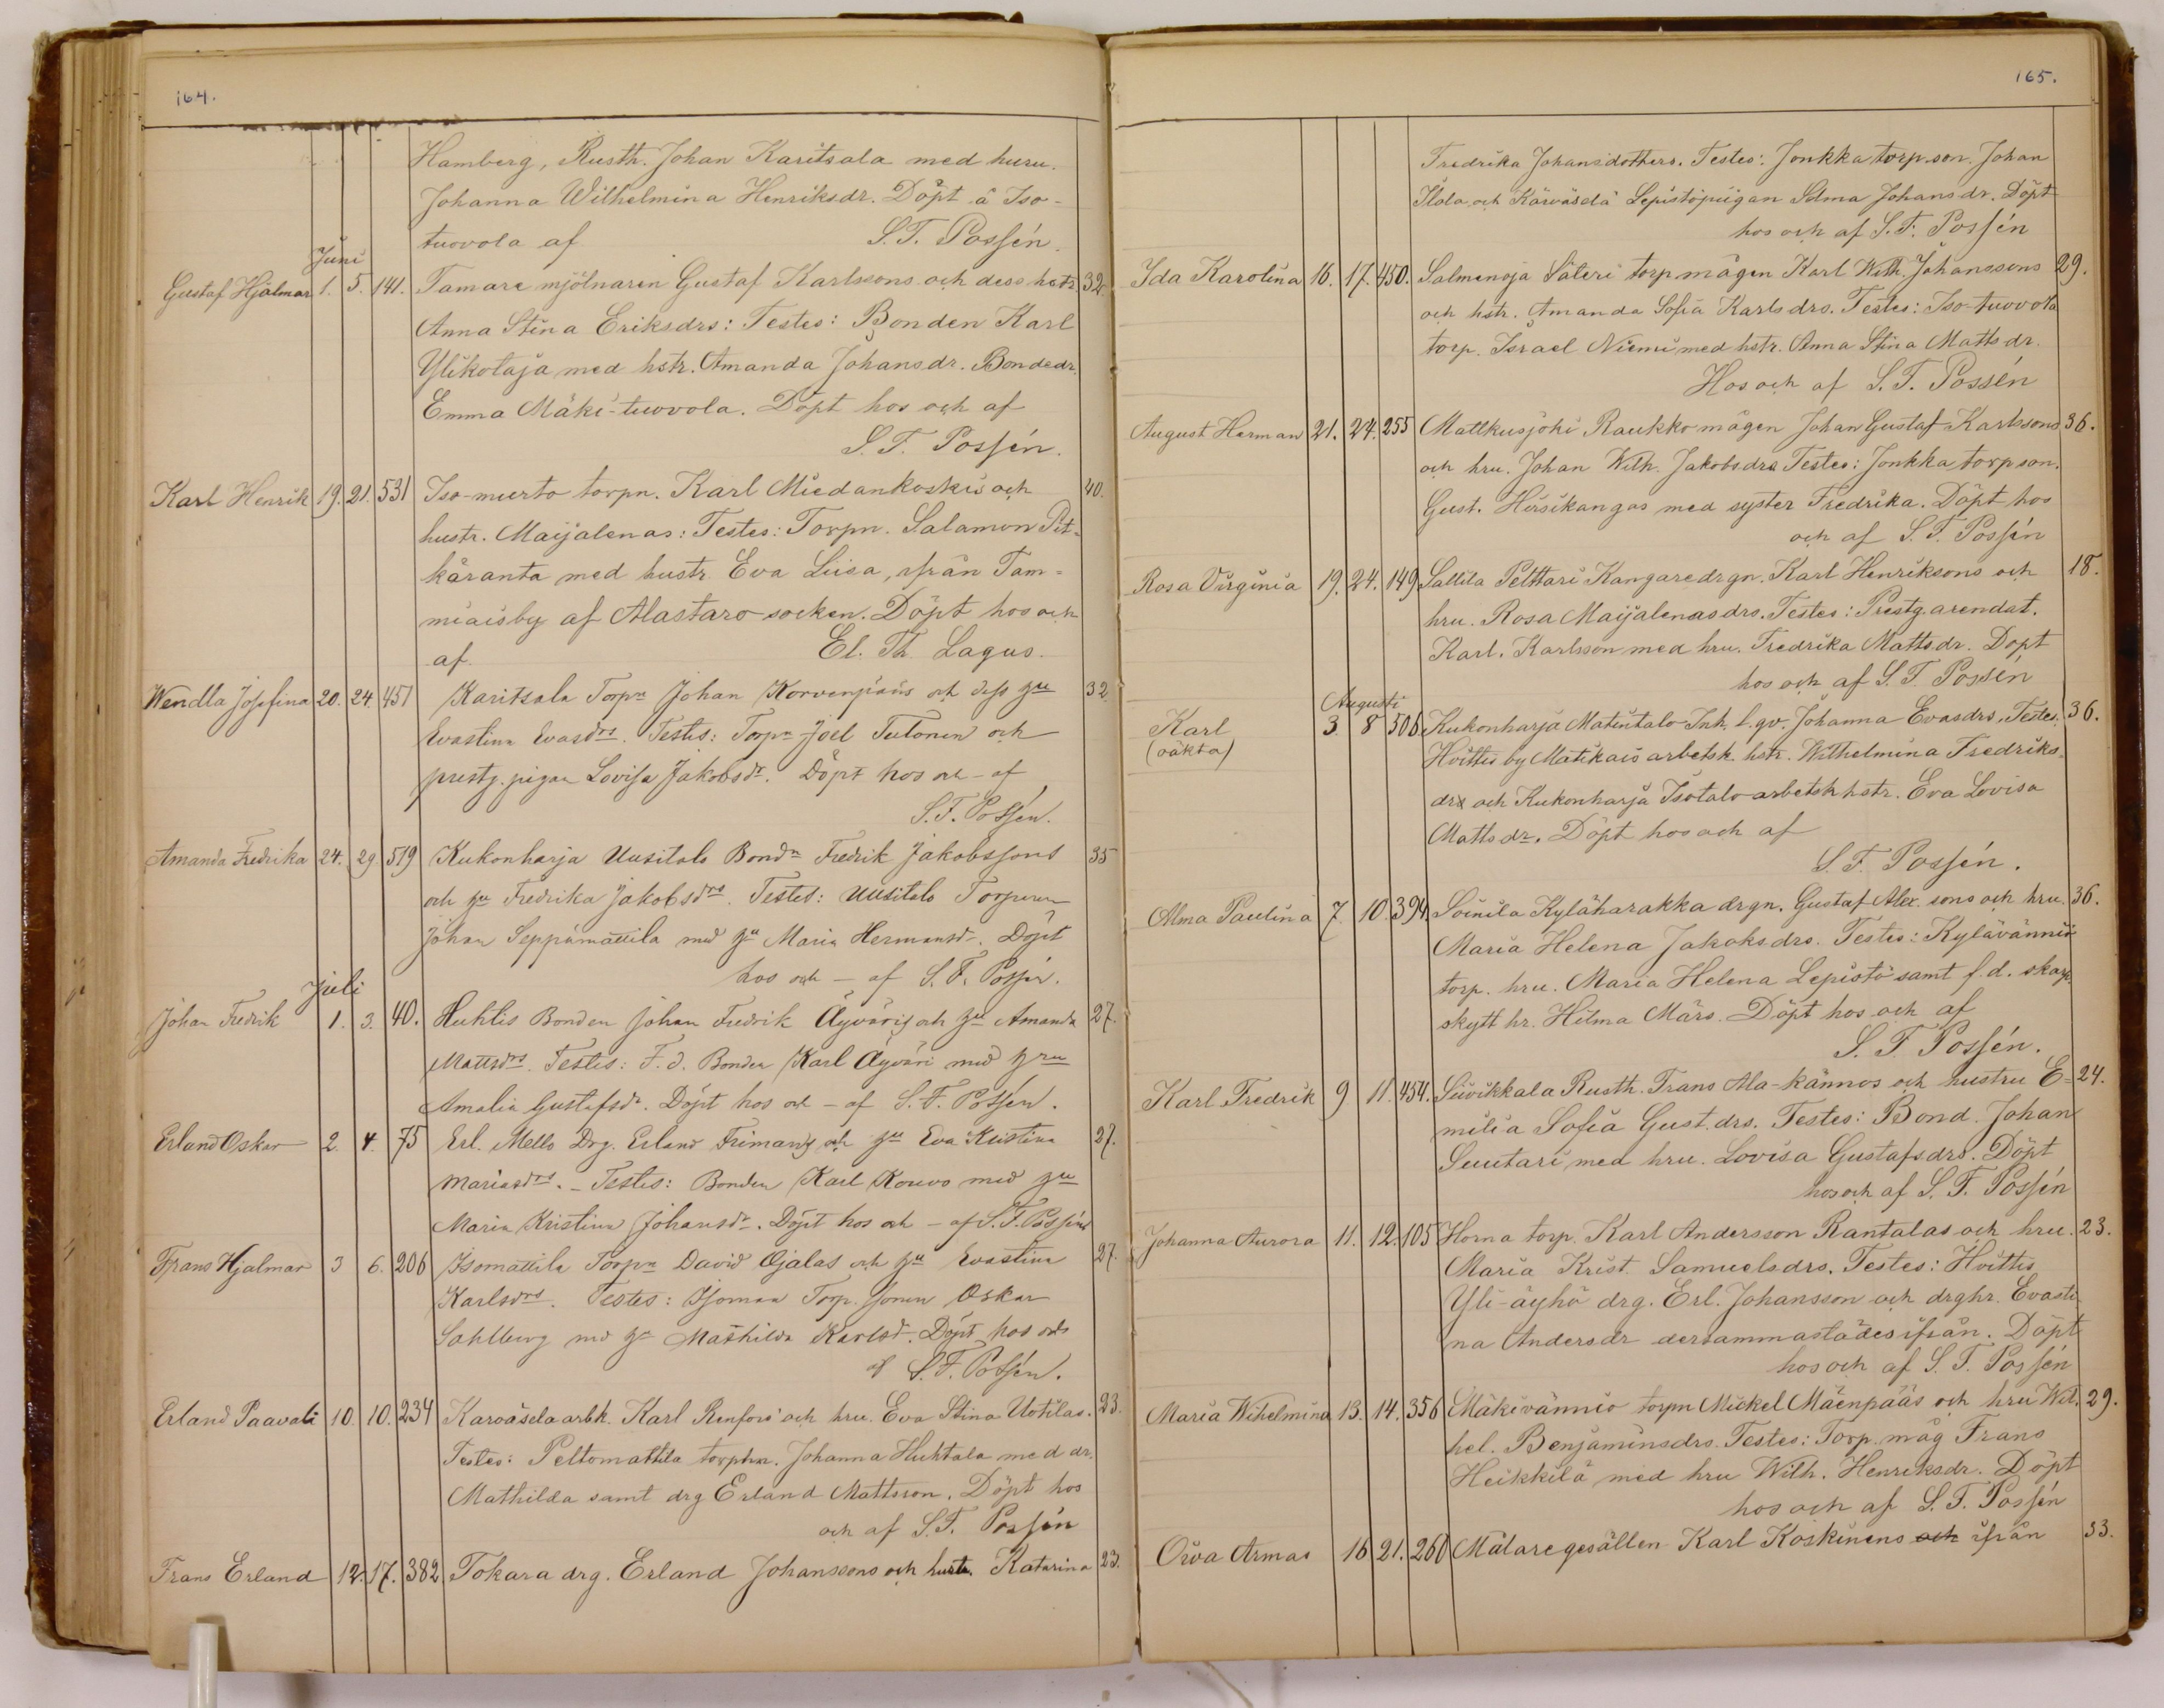 164.
Hamberg, Rusth. Johan Karitsala med huru.
Johanna Wilhelmina Henriksdr. Döpt å Iso-
tuovola af S. F. Possén.
Juni
Gustaf Hjalmar 1. 5. 141. Tamare mjölnaren Gustaf Karlssons och dess hstr 32.
Anna Stina Eriksdrs: Testes: Bonden Karl
Ylikotaja med hstr. Amanda Johansdr. Bondedr.
Emma Mäki-tuovola. Döpt hos och af
S. F. Possén.
Karl Henrik 19. 21. 531 Iso-murto torpn. Karl Miedankoskis och 40.
hustr. Maijalenas: Testes: Torpn. Salamon Pit-
käranta med hustr Eva Lisa, ifrån Tam-
miaisby af Alastaro socken. Döpt hos och
af El. Th. Lagus.
Wendla Josefina 20. 24. 451 Karitsala Torpn Johan Korvenpääs och dess hu 32
Evastina Evasdrs. Testes: Torpn Joel Tutonen och
prestg. pigan Lovisa Jakobsdr. Döpt hos och - af
S. F. Possén.
Amanda Fredrika 24. 29. 519 Kukonharja Uusitalo Bondn Fredrik Jakobssons 35
och hu Fredrika Jakobsdrs. Testes: Uusitalo Torparen
Johan Seppämattila med hu Maria Hermansdr. Döpt
hos och - af S. F. Possén.
Juli
Johan Fredrik 1. 3. 40. Huhtis Bonden Johan Fredrik Äyväris och hu Amanda 27.
Mattsdrs. Testes: F. d. Bonden Karl Äyväri med hru
Amalia Gustafsdr. Döpt hos och - af S. F. Possén.
Erland Oskar 2. 4. 75 Erl. Mello Drg. Erland Frimans och hu Eva Kristina 27.
Mariasdrs. - Testes: Bonden Karl Kouvo med hu
Maria Kristina Johansdr. Döpt hos och - af S. F. Possén
Frans Hjalmar 3 6. 206 Isomattila Torpn David Ojalas och hu Evastina 27.
Karlsdrs. Testes: Torp. sonen Oskar
Sahlberg med hu Mathilda Karlsdr. Döpt hos och
af S. F. Possén.
Erland Paavali 10. 10. 234 Karväsela arbk. Karl Renfors och hru. Eva Stina Uotilas. 23.
Testes: Peltomattila torphn. Johanna Huhtala med dr.
Mathilda samt drg Erland Mattsson. Döpt hos
och af S. F. Possén
Frans Erland 12. 17. 382 Tokara drg. Erland Johanssons och hustr. Katarina 23.
165.
Fredrika Johansdotters. Testes: Jonkka torp.son. Johan
Ilola och Kärväselä Lepistöpiigan Selma Johansdr. Döpt
hos och af S. F. Possén
Ida Karolina 16. 17. 450. Salmenoja Säteri torp mågen Karl Wilh. Johanssons 29.
och hstr. Amanda Sofia Karlsdrs. Testes: Iso-tuovola
torp. Israel Niemi med hstr. Anna Stina Mattsdr.
Hos och af S. F. Possén
August Herman 21. 24. 255 Matkusjoki Raukko mågen Johan Gustaf Karlssons 36.
och hru. Johan Wilh. Jakobsdrs Testes: Jonkka torpson.
Gust. Hirsikangas med syster Fredrika. Döpt hos
och af S. F. Possén
Rosa Virginia 19. 24. 149 Sallila Pelttari Kangaredrgn. Karl Henriksons och 18.
hru. Rosa Maijalenasdrs. Testes: Prestg. arendat.
Karl. Karlsson med hru. Fredrika Mattsdr. Döpt
hos och af S. F. Possén
Augusti
Karl 3 8 506 Kukonharja Matintalo Inh. l. qv. Johanna Evasdrs, Testes. 36.
(oäkta) Hvittis by Matikais arbetsk. hstr. Wilhelmina Fredriks-
drs och Kukonharja Isotalo arbetsk hstr. Eva Lovisa
Mattsdr. Döpt hos och af
S. F. Possén.
Alma Paulina 7. 10. 394. Soinila Kyläharakka drgn. Gustaf Alex. sons och hru. 36.
Maria Helena Jakobsdrs. Testes: Kylävännii
torp. hru. Maria Helena Lepistö samt f.d. skarp
skytt hr. Hilma Märs. Döpt hos och af
S. F. Possén.
Karl Fredrik 9 11. 454. Suvikkala Rusth. Frans Ala-kännos och hustru E- 24.
milia Sofia Gust.drs. Testes: Bond. Johan
Suutari med hru. Lovisa Gustafsdrs. Döpt
hos och af S. F. Possén
Johanna Aurora 11. 12. 105 Horna torp. Karl Andersson Rantalas och hru. 23.
Maria Krist. Samuelsdrs. Testes: Hvittis
Yli-äyhö drg. Erl. Johansson och drghr. Evasti-
na Andersdr dersammastädesifrån. Döpt
hos och af S. F. Possén
Maria Wihelmina 13. 14. 356 Mäkivännio torpn Mickel Mäenpääs och hru Wil. 29.
hel. Benjaminsdrs. Testes: Torp. måg Frans
Heikkilä med hru Wilh. Henriksdr. Döpt
hos och af S. F. Possén
Oiva Armas 16 21. 260 Målaregesällen Karl Koskinens och ifrån 33.